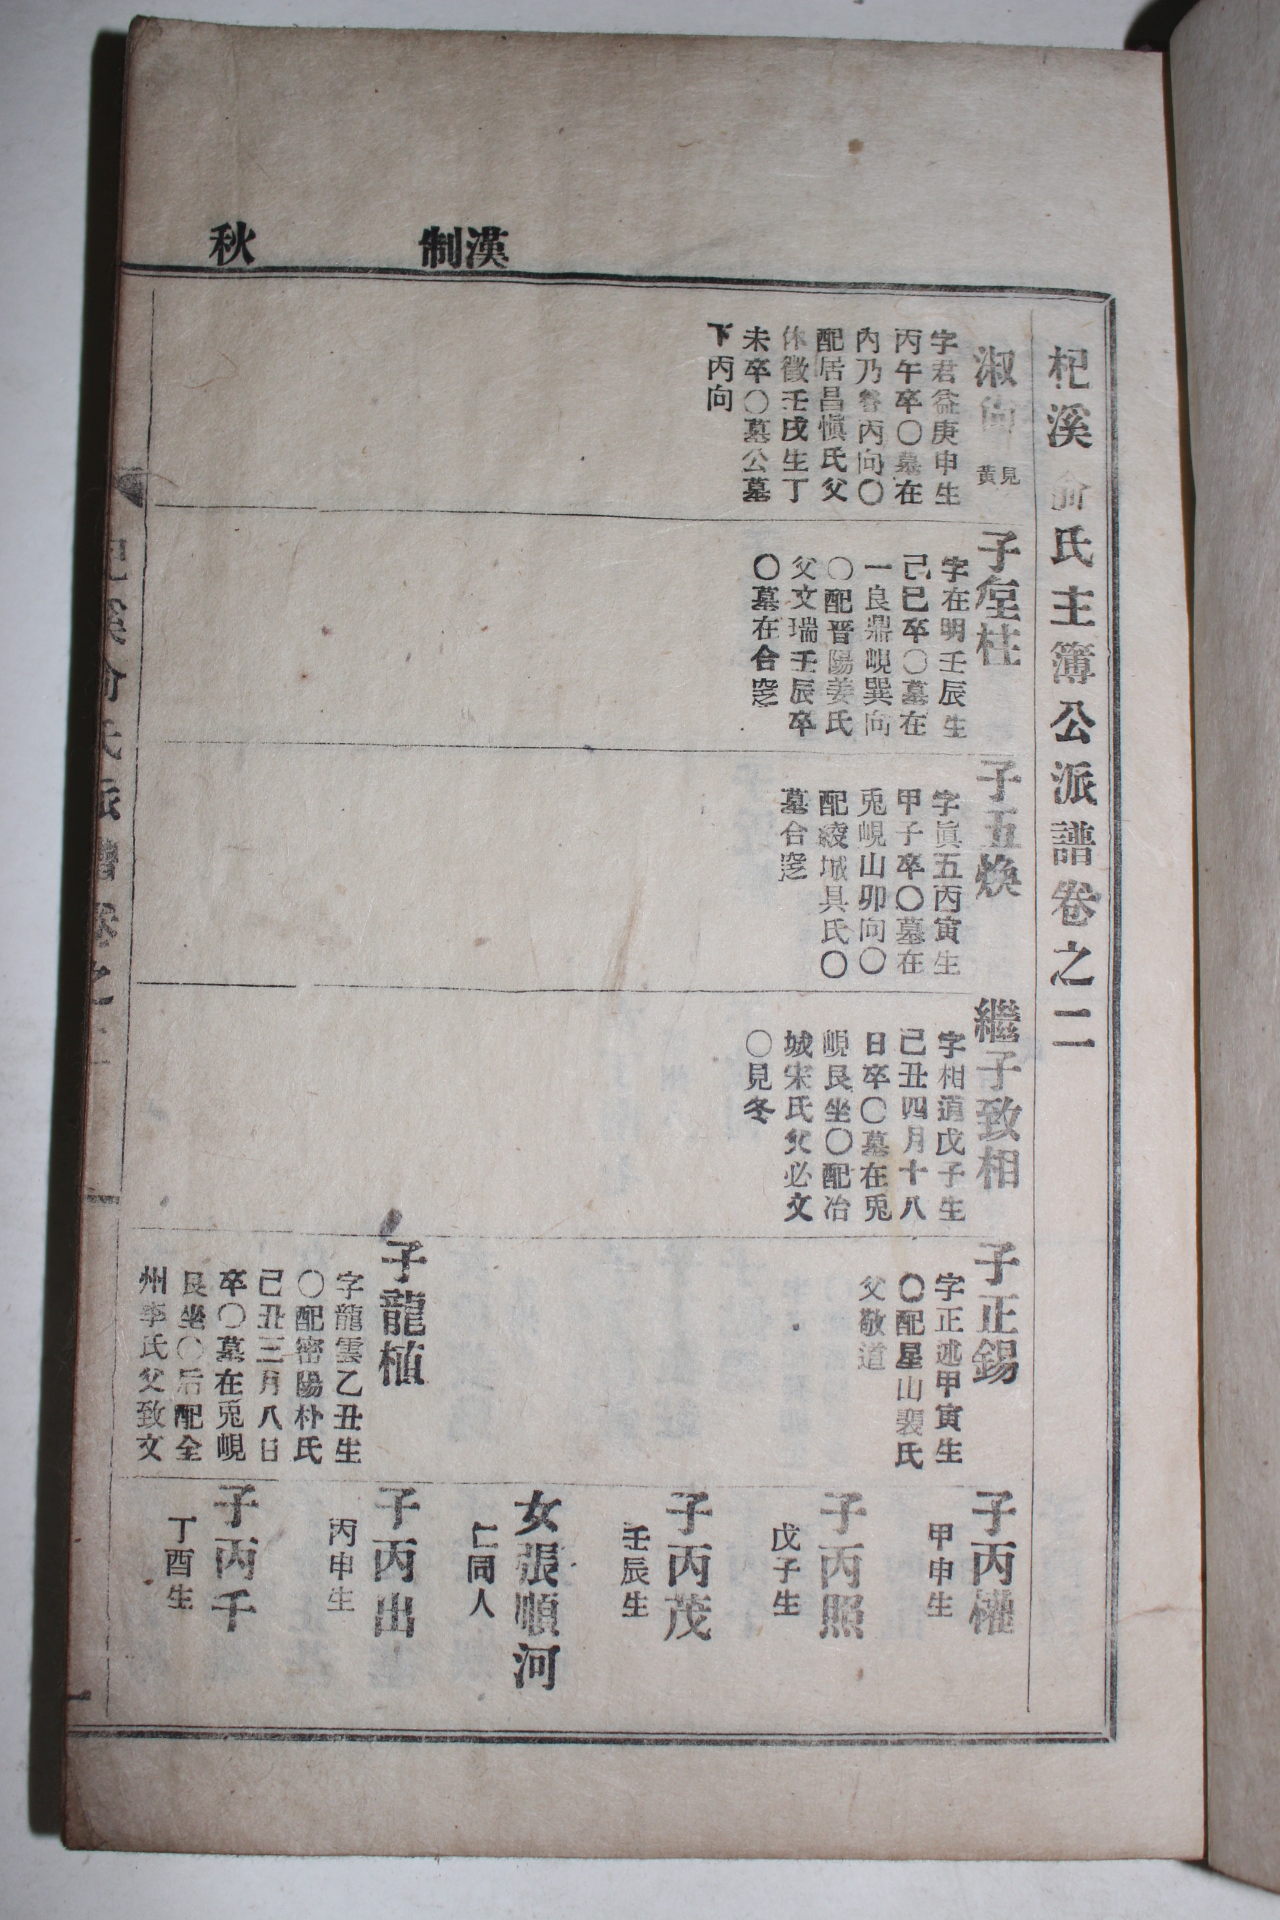 漢制
秋
杞溪俞氏主簿公派譜卷之二
淑
見黃
字君益庚申生
丙午卒〇墓在
內乃谷丙向〇
配居昌愼氏父
休徵壬戌生丁
未卒〇墓公墓
下丙向
子垕柱
字在明壬辰生
己巳卒〇墓在
一良鼎峴巽向
〇配晋陽姜氏
父文瑞壬辰卒
〇墓在合窆
子五煥
字眞五丙寅生
甲子卒〇墓在
兎峴山卯向〇
配綾城具氏〇
墓合窆
繼子致相
字相道戊子生
己丑四月十八
日卒〇墓在兎
峴艮坐〇配冶
城宋氏父必文
〇見冬
子正錫
字正述甲寅生
〇配星山裵氏
父敬道
子龍植
字龍雲乙丑生
〇配密陽朴氏
己丑三月八日
卒〇墓在兎峴
艮坐〇后配全
州李氏父致文
子丙權
甲申生
子丙照
戊子生
子丙茂
壬辰生
女張順河
仁同人
子丙出
丙申生
子丙千
丁酉生
杞溪俞氏派譜卷之二
一